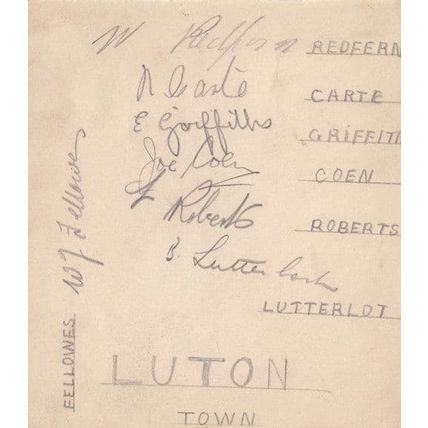 W Redfern REDFERN
R Carte CARTE
E Griffiths GRIFFITH
Joe Coen COEN
L Roberts ROBERTS
B. Lutterloch
LUTTERLOT
W J Fellowes
FELLOWES
LUTON
TOWN